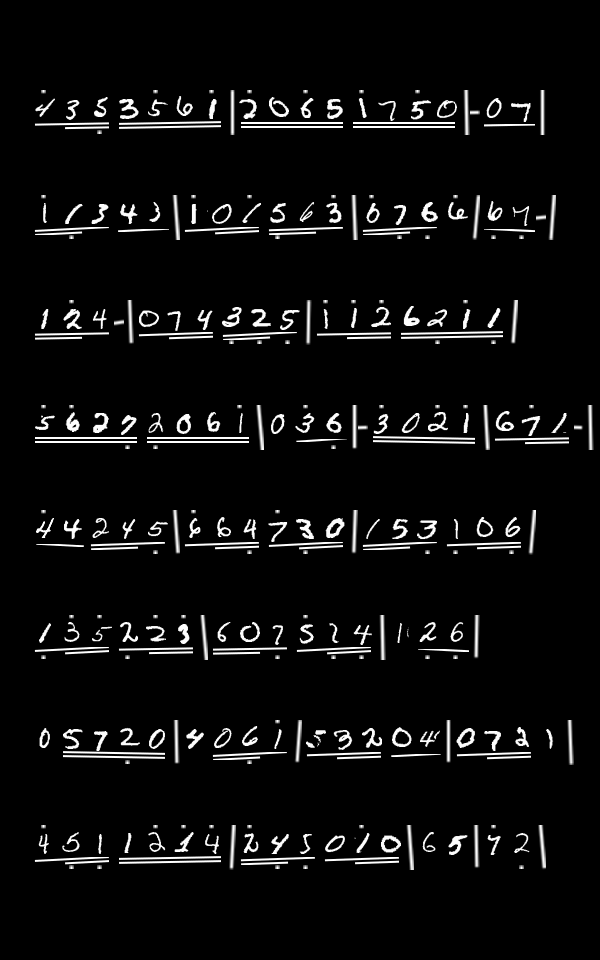 4 3 5 3 5 6 1 | 2 0 6 5 1 7 5 0 | - 0 7 |
1 1 3 4 3 | 1 0 1 5 6 3 | 6 7 6 6 | 6 7 - |
1 2 4 - | 0 7 4 3 2 5 | 1 1 2 6 2 1 1 |
5 6 2 7 2 0 6 1 | 0 3 6 | - 3 0 2 1 | 6 7 1 - |
4 4 2 4 5 | 6 6 4 7 3 0 | 1 5 3 1 0 6 |
1 3 5 2 2 3 | 6 0 7 5 2 4 | 1 2 6 |
0 5 7 2 0 | 4 0 6 1 | 5 3 2 0 4 | 0 7 2 1 |
4 5 1 1 2 1 4 | 2 4 5 0 1 0 | 6 5 | 4 2 |